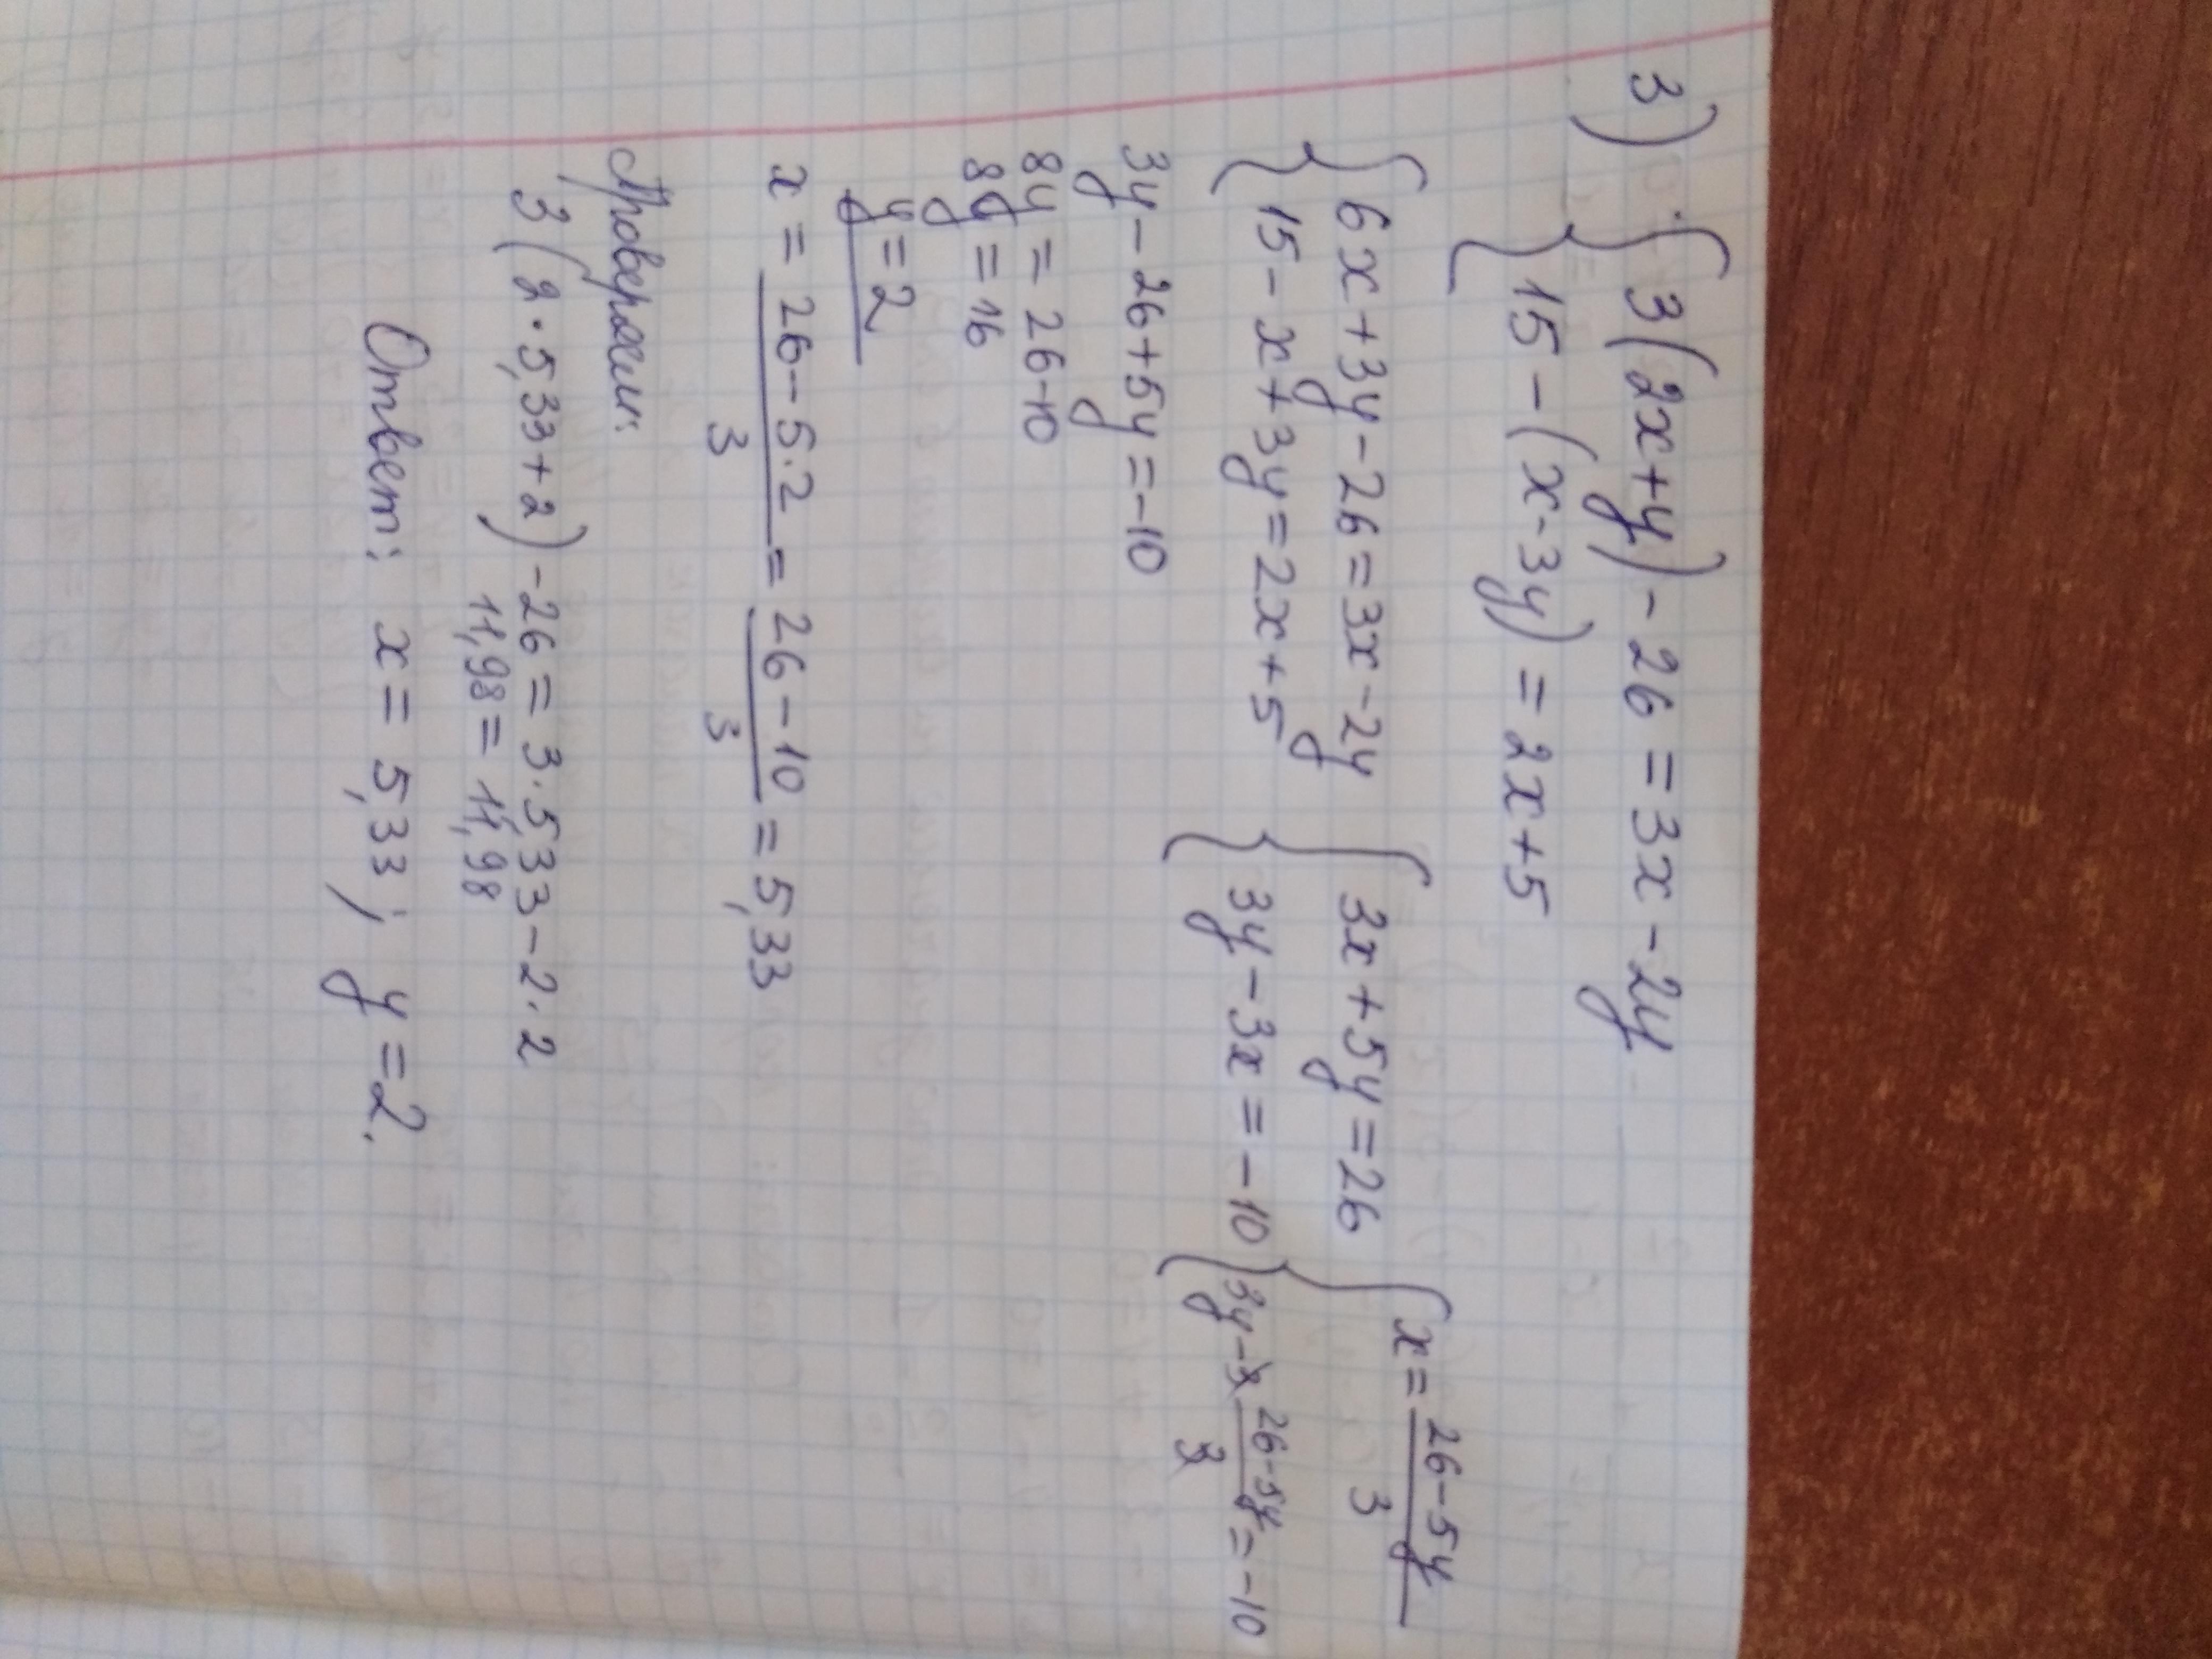 3) { 3(2x+y) - 26 = 3x - 2y
{ 15 - (x - 3y) = 2x + 5
{ 6x + 3y - 26 = 3x - 2y { 3x + 5y = 26 { x = (26 - 5y)/3
{ 15 - x + 3y = 2x + 5 { 3y - 3x = -10 { 3y - 3 · (26 - 5y)/3 = -10
3y - 26 + 5y = -10
8y = 26 - 10
8y = 16
y = 2
x = (26 - 5·2)/3 = (26 - 10)/3 = 5,33
Проверяем:
3(2·5,33+2) - 26 = 3·5,533 - 2·2
11,98 = 11,98
Ответ: x = 5,33; y = 2.